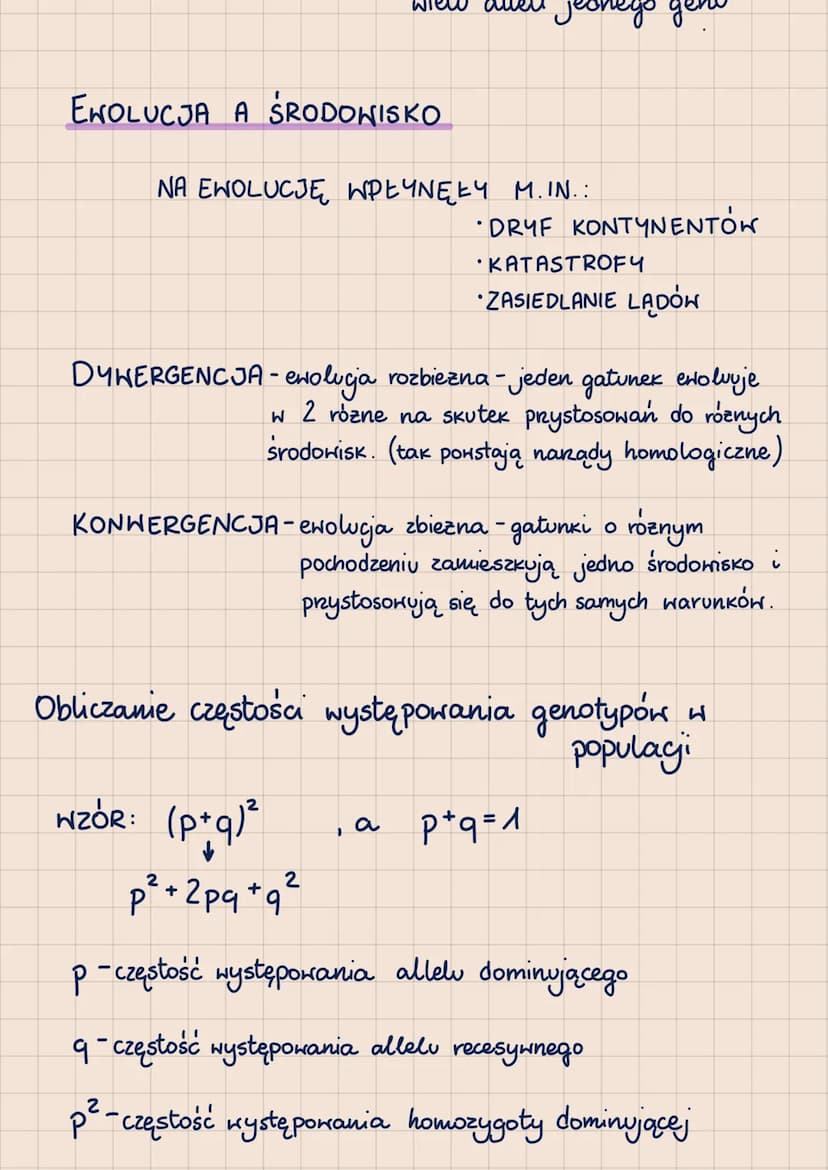 wielu alleli jednego genu
EWOLUCJA A ŚRODOWISKO
NA EWOLUCJĘ WPŁYNĘŁY M.IN.:
• DRYF KONTYNENTÓW
• KATASTROFY
• ZASIEDLANIE LĄDÓW
DYWERGENCJA - ewolucja rozbieżna - jeden gatunek ewoluuje
w 2 różne na skutek przystosowań do różnych
środowisk. (tak powstają narządy homologiczne)
KONWERGENCJA - ewolucja zbieżna - gatunki o różnym
pochodzeniu zamieszkują jedno środowisko i
przystosowują się do tych samych warunków.
Obliczanie częstości występowania genotypów w
populacji
WZÓR: (p+q)² , a p+q=1
↓
p² + 2pq + q²
p - częstość występowania allelu dominującego
q - częstość występowania allelu recesywnego
p² - częstość występowania homozygoty dominującej